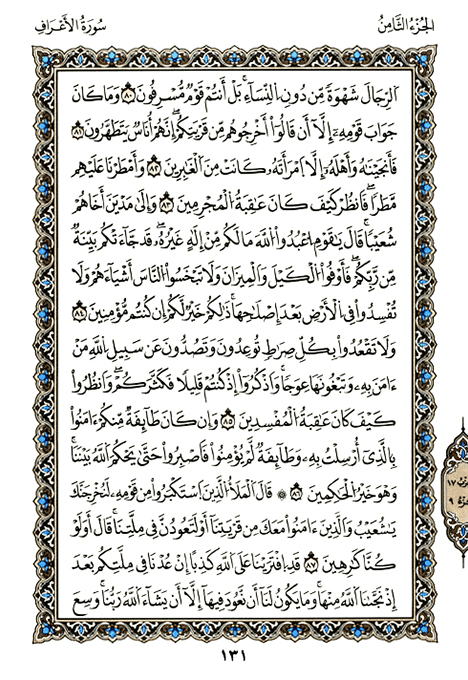 الجُزْءُ الثَّامِنُ
سُورَةُ الأَعْرَافِ
الرِّجَالَ شَهْوَةً مِّن دُونِ النِّسَآءِ بَلْ أَنتُمْ قَوْمٌ مُّسْرِفُونَ ٨٠ وَمَا كَانَ
جَوَابَ قَوْمِهِۦٓ إِلَّآ أَن قَالُوٓا۟ أَخْرِجُوهُم مِّن قَرْيَتِكُمْ إِنَّهُمْ أُنَاسٌ يَتَطَهَّرُونَ ٨١
فَأَنجَيْنَٰهُ وَأَهْلَهُۥٓ إِلَّا ٱمْرَأَتَهُۥ كَانَتْ مِنَ ٱلْغَٰبِرِينَ ٨٢ وَأَمْطَرْنَا عَلَيْهِم
مَّطَرًا فَٱنظُرْ كَيْفَ كَانَ عَٰقِبَةُ ٱلْمُجْرِمِينَ ٨٣ وَإِلَىٰ مَدْيَنَ أَخَاهُمْ
شُعَيْبًا قَالَ يَٰقَوْمِ ٱعْبُدُوا۟ ٱللَّهَ مَا لَكُم مِّنْ إِلَٰهٍ غَيْرُهُۥ قَدْ جَآءَتْكُم بَيِّنَةٌ
مِّن رَّبِّكُمْ فَأَوْفُوا۟ ٱلْكَيْلَ وَٱلْمِيزَانَ وَلَا تَبْخَسُوا۟ ٱلنَّاسَ أَشْيَآءَهُمْ وَلَا
تُفْسِدُوا۟ فِى ٱلْأَرْضِ بَعْدَ إِصْلَٰحِهَا ذَٰلِكُمْ خَيْرٌ لَّكُمْ إِن كُنتُم مُّؤْمِنِينَ ٨٤
وَلَا تَقْعُدُوا۟ بِكُلِّ صِرَٰطٍ تُوعِدُونَ وَتَصُدُّونَ عَن سَبِيلِ ٱللَّهِ مَنْ
ءَامَنَ بِهِۦ وَتَبْغُونَهَا عِوَجًا وَٱذْكُرُوٓا۟ إِذْ كُنتُمْ قَلِيلًا فَكَثَّرَكُمْ وَٱنظُرُوا۟
كَيْفَ كَانَ عَٰقِبَةُ ٱلْمُفْسِدِينَ ٨٥ وَإِن كَانَ طَآئِفَةٌ مِّنكُمْ ءَامَنُوا۟
بِٱلَّذِىٓ أُرْسِلْتُ بِهِۦ وَطَآئِفَةٌ لَّمْ يُؤْمِنُوا۟ فَٱصْبِرُوا۟ حَتَّىٰ يَحْكُمَ ٱللَّهُ بَيْنَنَا
وَهُوَ خَيْرُ ٱلْحَٰكِمِينَ ٨٦ ۞ قَالَ ٱلْمَلَأُ ٱلَّذِينَ ٱسْتَكْبَرُوا۟ مِن قَوْمِهِۦ لَنُخْرِجَنَّكَ
يَٰشُعَيْبُ وَٱلَّذِينَ ءَامَنُوا۟ مَعَكَ مِن قَرْيَتِنَآ أَوْ لَتَعُودُنَّ فِى مِلَّتِنَا قَالَ أَوَلَوْ
كُنَّا كَٰرِهِينَ ٨٧ قَدِ ٱفْتَرَيْنَا عَلَى ٱللَّهِ كَذِبًا إِنْ عُدْنَا فِى مِلَّتِكُم بَعْدَ
إِذْ نَجَّىٰنَا ٱللَّهُ مِنْهَا وَمَا يَكُونُ لَنَآ أَن نَّعُودَ فِيهَآ إِلَّآ أَن يَشَآءَ ٱللَّهُ رَبُّنَا وَسِعَ
١٧
٩
١٣١